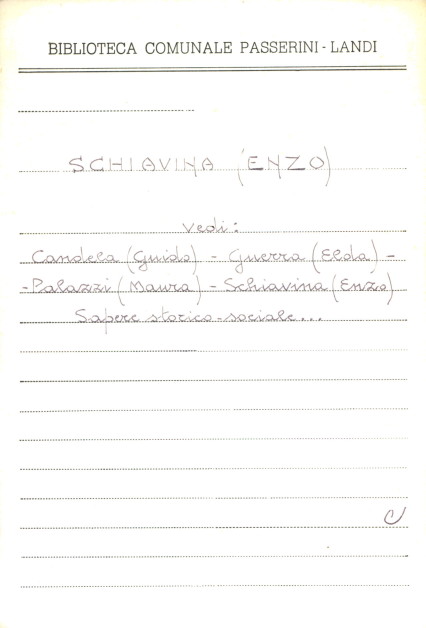 BIBLIOTECA COMUNALE PASSERINI - LANDI
SCHIAVINA (ENZO)
Vedi:
Candela (Guido) - Guerra (Elda) -
- Palazzi (Maura) - Schiavina (Enzo)
Sapere storico-sociale...